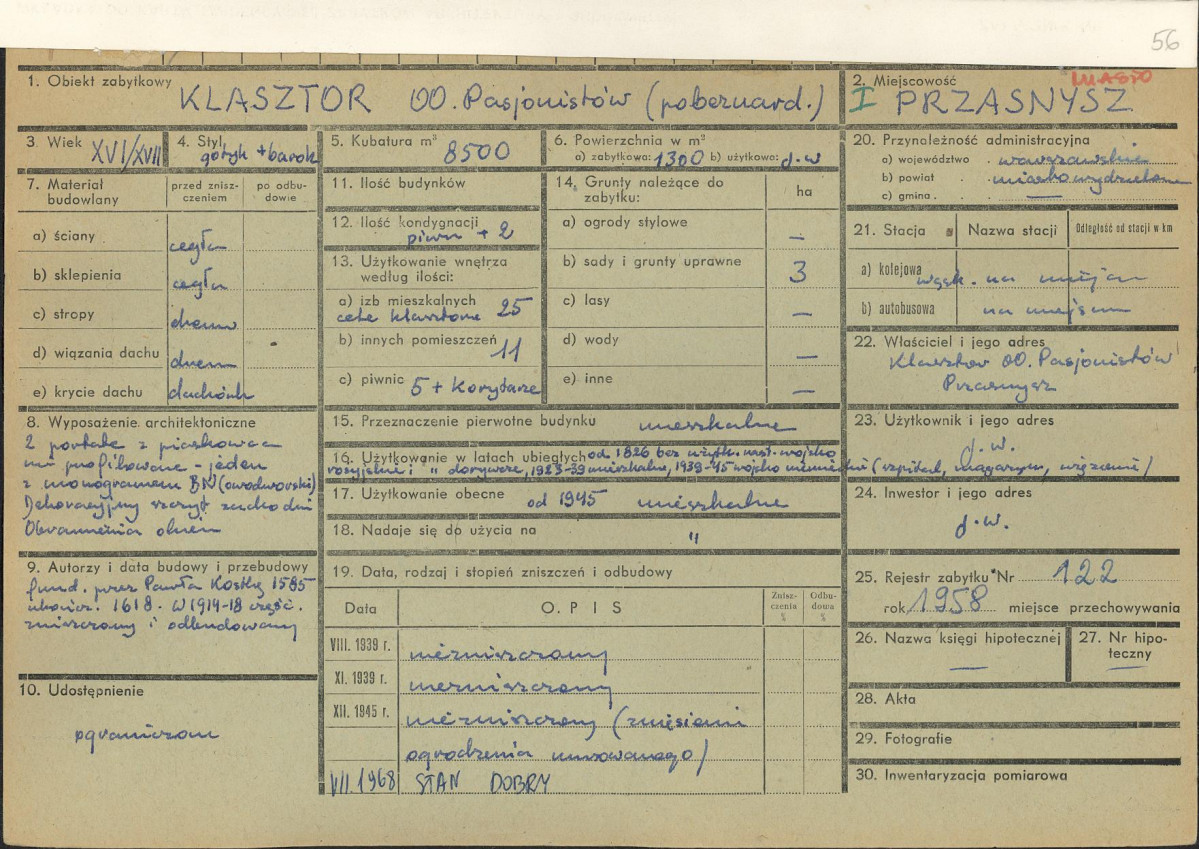 56
1. Obiekt zabytkowy KLASZTOR OO. Pasjonistów (pobernard.)
2. Miejscowość MIASTO
I PRZASNYSZ
3 Wiek XVI/XVII
4. Styl gotyk + barok
5. Kubatura m³ 8500
6. Powierzchnia w m²
a) zabytkowa: 1300 b) użytkowa: j.w
7. Materiał budowlany
przed zniszczeniem
po odbudowie
a) ściany cegła
b) sklepienia cegła
c) stropy drewn
d) wiązania dachu drewn
e) krycie dachu dachówk
8. Wyposażenie architektoniczne
2 portale z piaskowca
profilowane - jeden
z monogramem
Dekoracyjny szczyt zachodni
Obramienia okien
9. Autorzy i data budowy i przebudowy
fund. przez Pawła Kostkę 1585
ukończ. 1618. W 1914-18 część.
zniszczony i odbudowany
10. Udostępnienie
ograniczone
11. Ilość budynków
12. Ilość kondygnacji
piwn + 2
13. Użytkowanie wnętrza
według ilości:
a) izb mieszkalnych
cele klasztorne 25
b) innych pomieszczeń
11
c) piwnic 5 + Korytarze
14. Grunty należące do
zabytku:
ha
a) ogrody stylowe —
b) sady i grunty uprawne 3
c) lasy —
d) wody —
e) inne —
15. Przeznaczenie pierwotne budynku mieszkalne
16. Użytkowanie w latach ubiegłych od 1826 bez użytk. nast. wojsko
rosyjskie i " dorywcze, 1923-39 mieszkalne, 1939-45 wojsko niemieckie (szpital, magazyn, więzienie)
17. Użytkowanie obecne
od 1945 mieszkalne
18. Nadaje się do użycia na "
19. Data, rodzaj i stopień zniszczeń i odbudowy
Data
O. P I S
Zniszczenia %
Odbudowa %
VIII. 1939 r. niezniszczony
XI. 1939 r. niezniszczony
XII. 1945 r. niezniszczony (
ogrodzenia murowanego)
VII. 1968 STAN DOBRY
20. Przynależność administracyjna
a) województwo . warszawskie
b) powiat . . miasto wydzielone
c) gmina . . —
21. Stacja
Nazwa stacji
Odległość od stacji w km
a) kolejowa wąsk. na miejscu
b) autobusowa na miejscu
22. Właściciel i jego adres
Klasztor OO. Pasjonistów
Przasnysz
23. Użytkownik i jego adres
j.w.
24. Inwestor i jego adres
j.w.
25. Rejestr zabytku Nr 122
rok 1958 miejsce przechowywania
26. Nazwa księgi hipotecznej
—
27. Nr hipoteczny
—
28. Akta
29. Fotografie
30. Inwentaryzacja pomiarowa